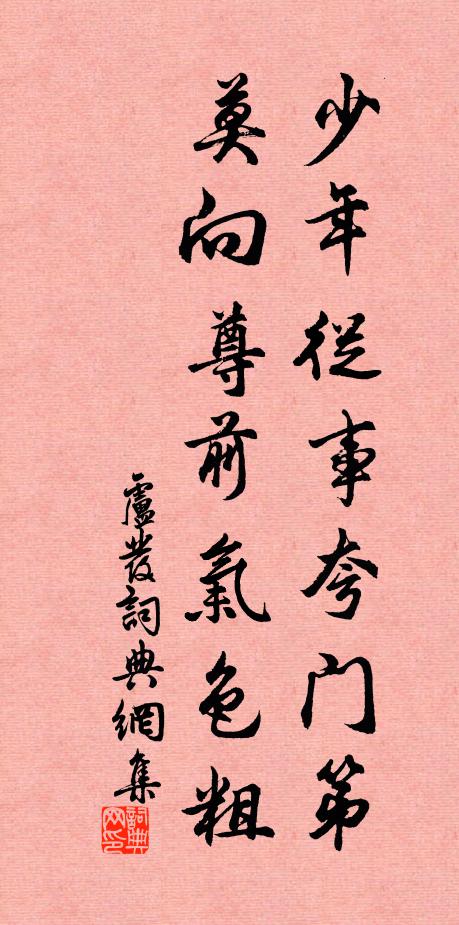 少年從事夸门第
莫向尊前氣色粗
盧發詞典網集
詞典网印